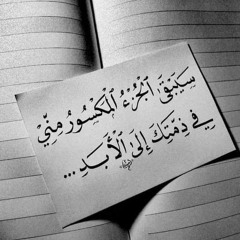 سَيَبْقَىٰ ٱلْجُزْءُ ٱلْمَكْسُورُ مِنِّيْ
فِيْ ذِمَّتِكَ إِلَىٰ ٱلْأَبَدِ ...